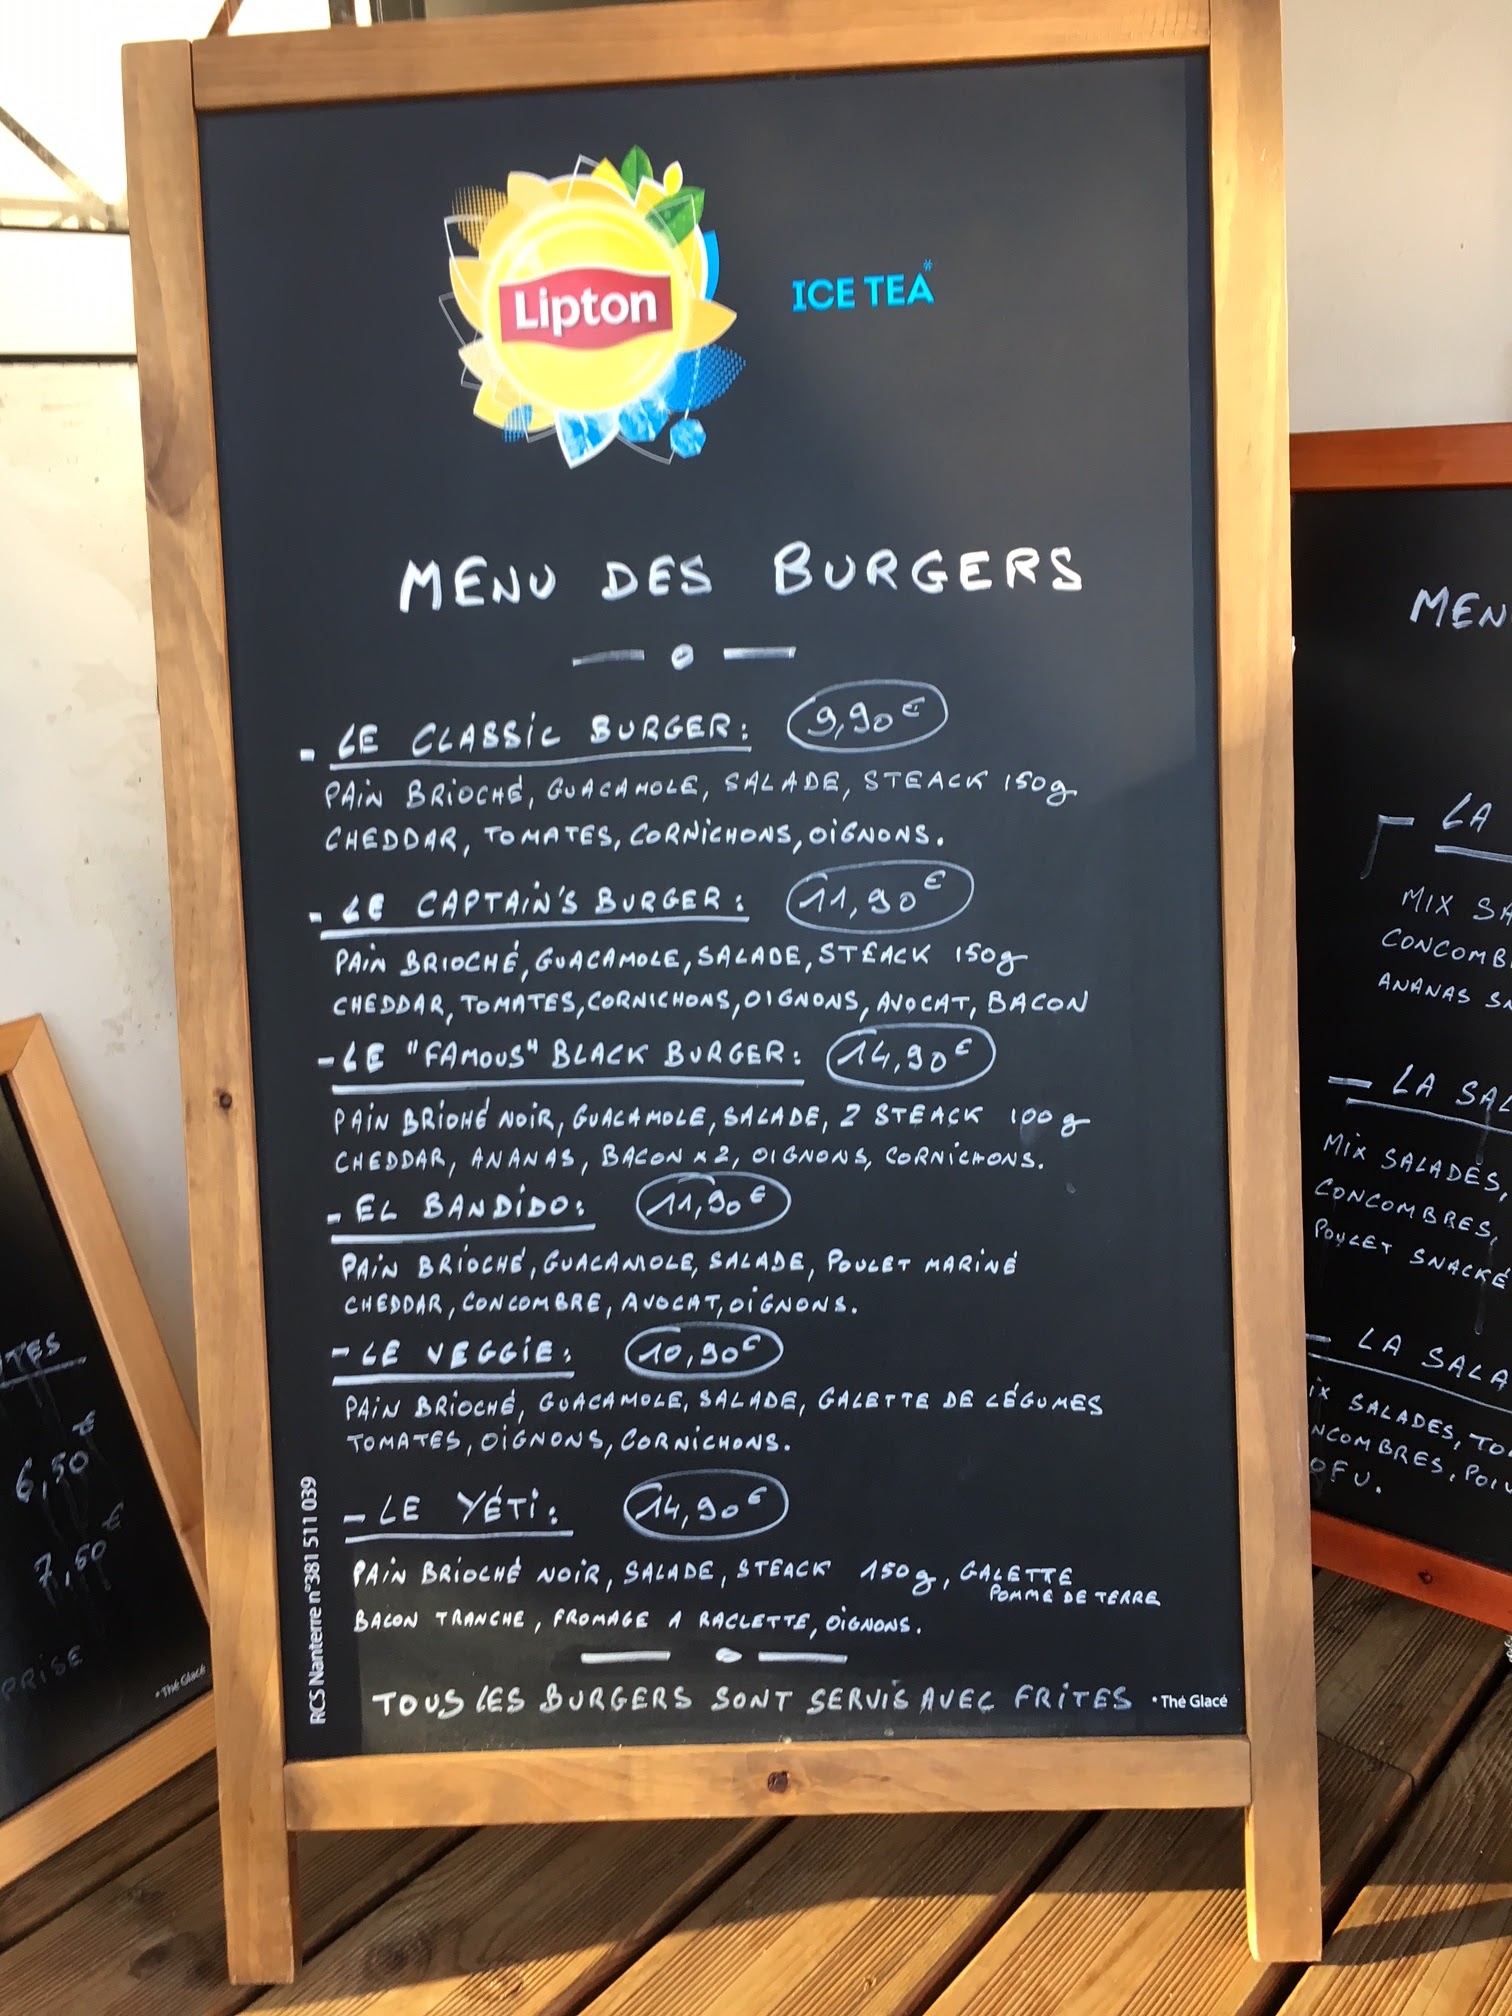 Lipton
ICE TEA*
MENU DES BURGERS
- LE CLASSIC BURGER: 9,90€
PAIN BRIOCHÉ, GUACAMOLE, SALADE, STEACK 150g
CHEDDAR, TOMATES, CORNICHONS, OIGNONS.
- LE CAPTAIN'S BURGER: 11,90€
PAIN BRIOCHÉ, GUACAMOLE, SALADE, STEACK 150g
CHEDDAR, TOMATES, CORNICHONS, OIGNONS, AVOCAT, BACON
- LE "FAMOUS" BLACK BURGER: 14,90€
PAIN BRIOHÉ NOIR, GUACAMOLE, SALADE, 2 STEACK 100g
CHEDDAR, ANANAS, BACON x2, OIGNONS, CORNICHONS.
- EL BANDIDO: 11,90€
PAIN BRIOCHÉ, GUACAMOLE, SALADE, POULET MARINÉ
CHEDDAR, CONCOMBRE, AVOCAT, OIGNONS.
- LE VEGGIE: 10,90€
PAIN BRIOCHÉ, GUACAMOLE, SALADE, GALETTE DE LÉGUMES
TOMATES, OIGNONS, CORNICHONS.
- LE YÉTI: 14,90€
PAIN BRIOCHÉ NOIR, SALADE, STEACK 150g, GALETTE
POMME DE TERRE
BACON TRANCHE, FROMAGE A RACLETTE, OIGNONS.
TOUS LES BURGERS SONT SERVIS AVEC FRITES
*Thé Glacé
RCS Nanterre n°381 511 039
6,50€
7,50€
*Thé Glacé
MEN
LA
MIX SA
CONCOMB
ANANAS SN
- LA SAL
MIX SALADES,
CONCOMBRES,
POULET SNACKÉ
- LA SALA
IX SALADES, TO
NCOMBRES, POIV
OFU.